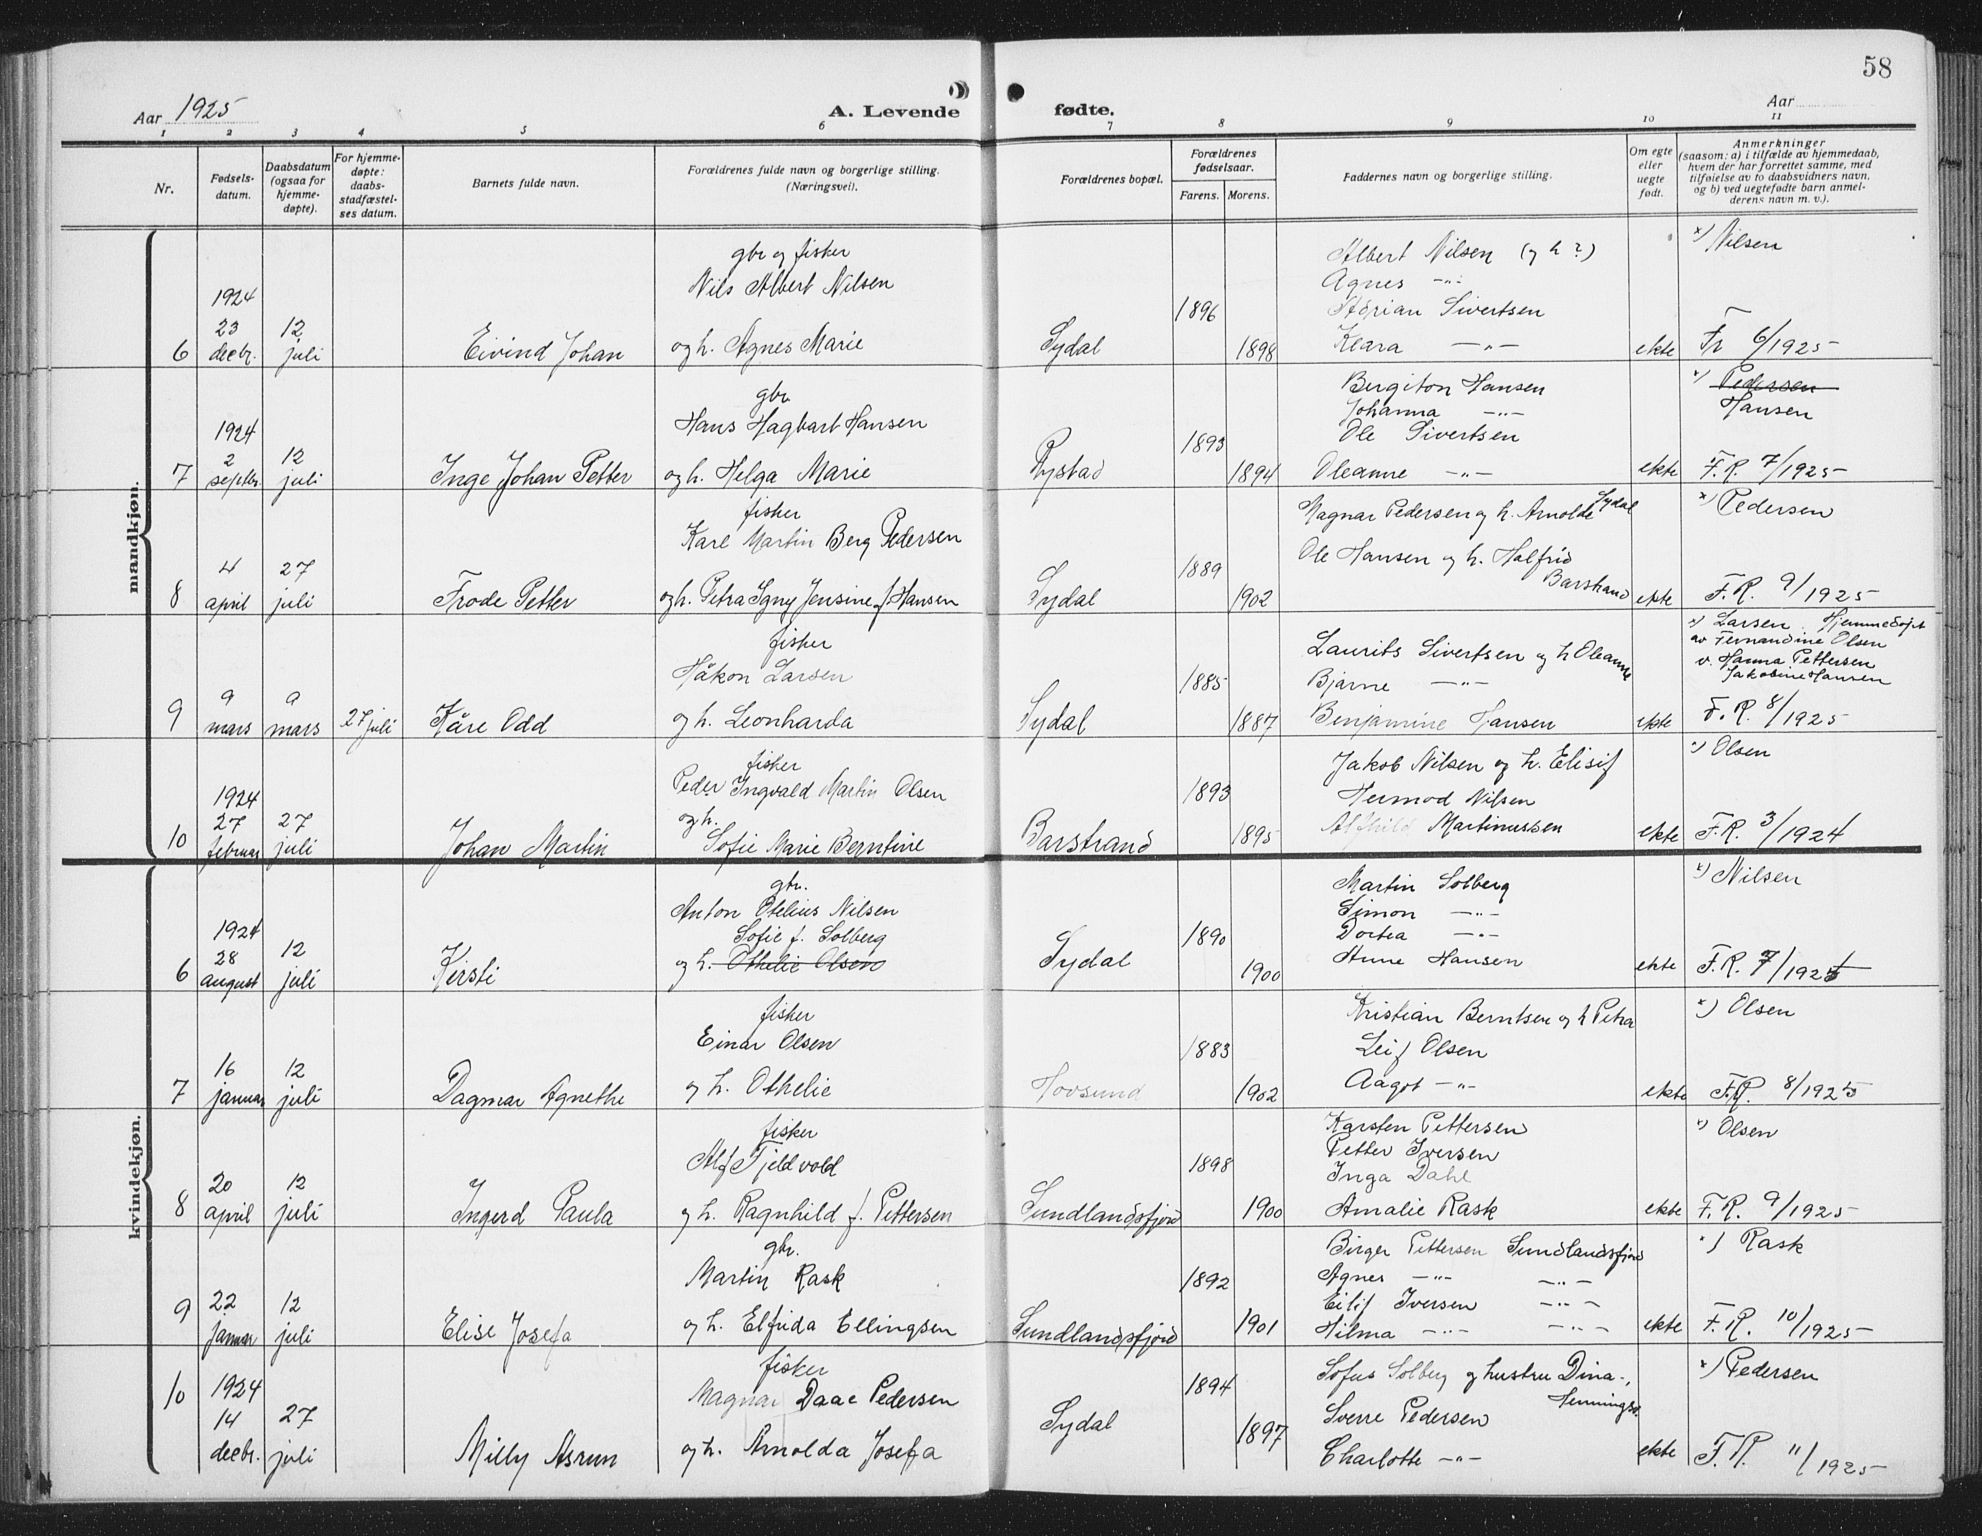 58
Aar 1925
A. Levende
fødte.
Aar
1 2 3 4 5 6 7 8 9 10 11
Nr.
Fødsels-
datum.
Daabsdatum
(ogsaa for
hjemme-
døpte).
For hjemme-
døpte:
daabs-
stadfæstel-
ses datum.
Barnets fulde navn.
Forældrenes fulde navn og borgerlige stilling.
(Næringsvei).
Forældrenes bopæl.
Forældrenes
fødselsaar.
Farens. Morens.
Faddernes navn og borgerlige stilling.
Om egte
eller
uegte
født.
Anmerkninger
(saasom: a) i tilfælde av hjemmedaab,
hvem der har forrettet samme, med
tilføielse av to daabsvidners navn,
og b) ved uegtefødte barn anmel-
derens navn m. v.).
mandkjøn.
6
1924
23
decbr.
12
juli
Eivind Johan
gbr og fisker
Nils Albert Nilsen
og h. Agnes Marie
Sydal
1896
1898
Albert Nilsen (og h?)
Agnes -"-
Adrian Sivertsen
Klara -"-
ekte
x) Nilsen
Fr 6/1925
7
1924
2
septbr.
12
juli
Inge Johan Petter
gbr
Hans Hagbart Hansen
og h. Helga Marie
Rystad
1893
1894
Bergiton Hansen
Johanna -"-
Ole Sivertsen
Oleanne -"-
ekte
x) Pedersen
Hansen
F.R. 7/1925
8
4
april
27
juli
Frode Petter
fisker
Karl Martin Berg Pedersen
og h. Petra Signy Jensine f. Hansen
Sydal
1889
1902
Magnar Pedersen og h. Arnolde Sydal
Ole Hansen og h. Halfrid
Barstrand
ekte
x) Pedersen
F.R. 9/1925
9
9
mars
9
mars
27 juli
Kåre Odd
fisker
Håkon Larsen
og h. Leonharda
Sydal
1885
1887
Laurits Sivertsen og h Oleanne
Bjarne -"-
Benjamine Hansen
ekte
x) Larsen. Hjemmedøpt
av Fernandine Olsen
v. Hanna Pettersen
Jakobine Hansen
F.R. 8/1925
10
1924
27
februar
27
juli
Johan Martin
fisker
Peder Ingvald Martin Olsen
og h.
Sofie Marie Berntine
Barstrand
1893
1895
Jakob Nilsen og h. Elisif
Hermod Nilsen
Alfhild Martinussen
ekte
x) Olsen
F.R. 3/1924
kvindekjøn.
6
1924
28
august
12
juli
Kirsti
gbr.
Anton Otelius Nilsen
Sofie f. Solberg
og h. Othelie Olsen
Sydal
1890
1900
Martin Solberg
Simon -"-
Dortea -"-
Anne Hansen
ekte
x) Nilsen
F.R. 7/1925
7
16
januar
12
juli
Dagmar Agnethe
fisker
Einar Olsen
og h. Othelie
Hovsund
1883
1902
Kristian Berntsen og h Petra
Leif Olsen
Aagot -"-
ekte
x) Olsen
F.R. 8/1925
8
20
april
12
juli
Ingerd Paula
fisker
Alf Fjeldvold
og h. Ragnhild f. Pettersen
Sundlandsfjord
1898
1900
Karsten Pettersen
Petter Iversen
Inga Dahl
Amalie Rask
ekte
x) Olsen
F.R. 9/1925
9
22
januar
12
juli
Elise Josefa
gbr.
Martin Rask
og h. Elfrida Ellingsen
Sundlandsfjord
1892
1901
Birger Pettersen Sundlandsfjord
Agnes -"- -"-
Eilif Iversen -"-
Hilma -"- -"-
ekte
x) Rask
F.R. 10/1925
10
1924
14
decbr.
27
juli
Milly Asrun
fisker
Magnar Daae Pedersen
og h. Arnolda Josefa
Sydal
1894
1897
Sofus Solberg og hustru Dina
Hennings.
Sverre Pedersen
Charlotte -"-
ekte
x) Pedersen
F.R. 11/1925